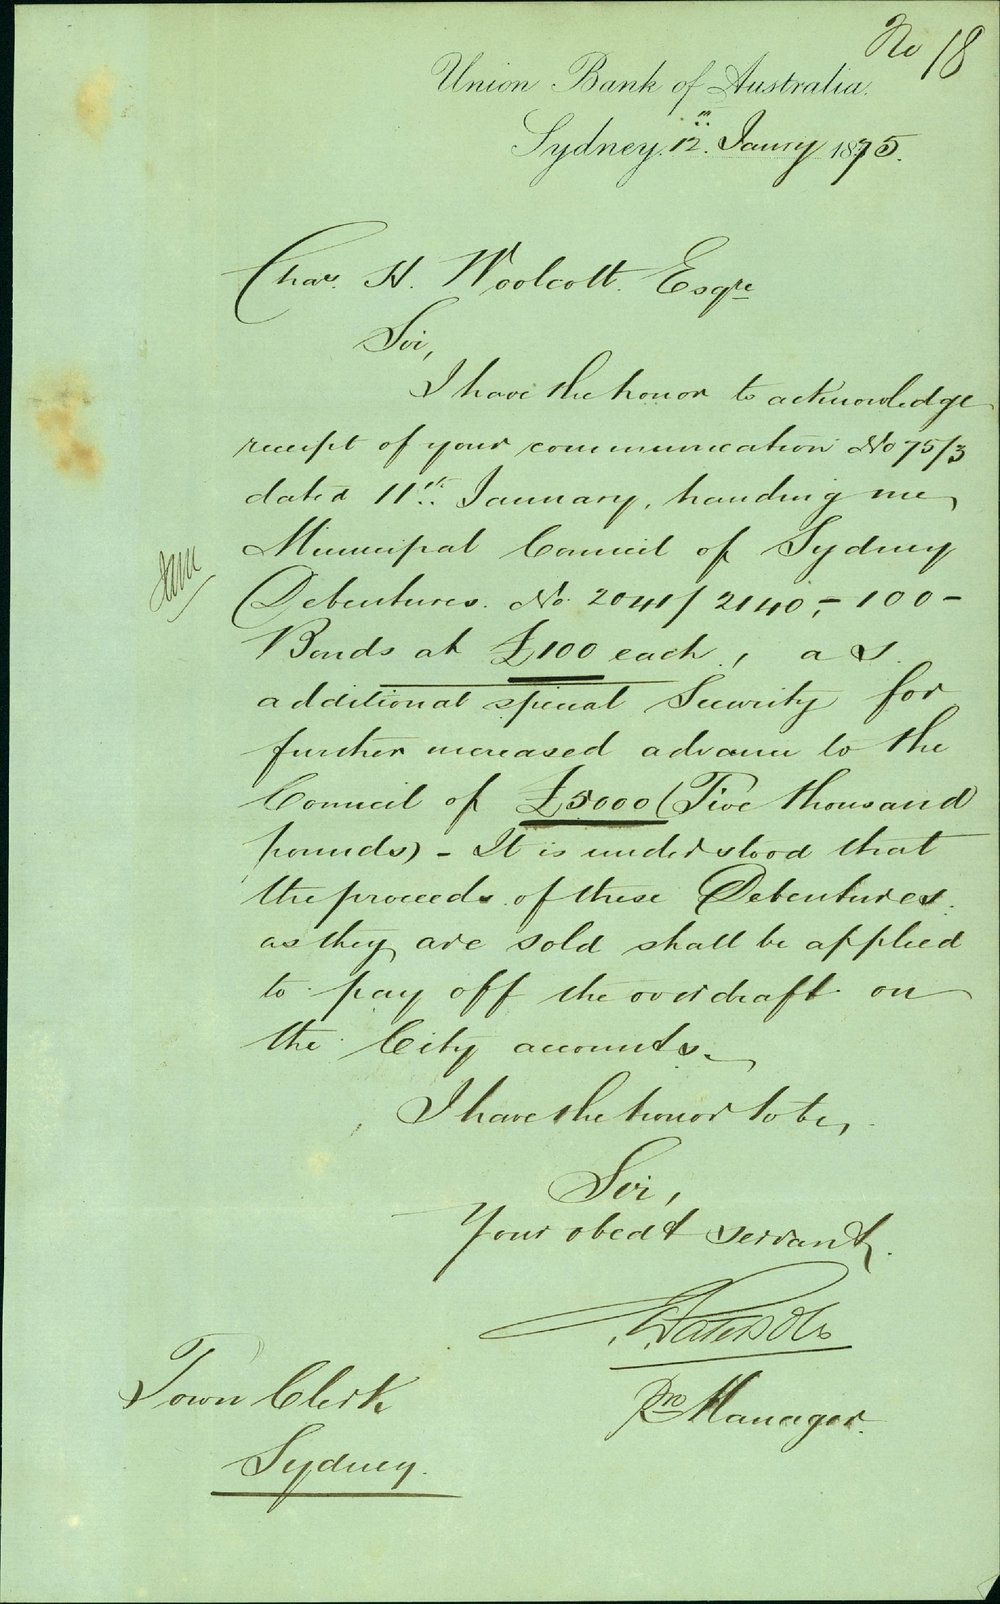 No 18
Union Bank of Australia.
Sydney. 12th Jany 1875.
Chas. H. Woolcott. Esqre
Sir,
I have the honor to acknowledge
receipt of your communication No 75/3
dated 11th January, handing me
Municipal Council of Sydney
Debentures. No 2041/2140, - 100 -
Bonds at £100 each, as
additional special Security for
further increased advance to the
Council of £5000 (Five thousand
pounds) - It is understood that
the proceeds of these Debentures
as they are sold shall be applied
to pay off the overdraft on
the City accounts.
I have the honor to be,
Sir,
Your obedt servant,
Pro Manager.
Town Clerk
Sydney.